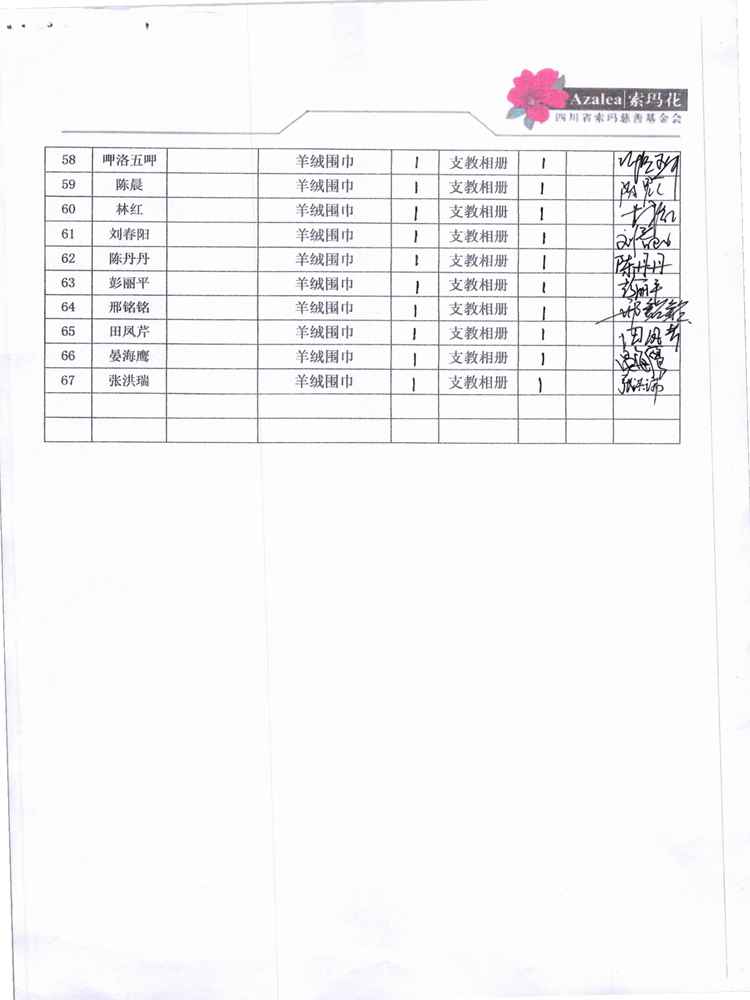 Azalea|索玛花
四川省索玛慈善基金会
58 呷洛五呷 羊绒围巾 1 支教相册 1
59 陈晨 羊绒围巾 1 支教相册 1
60 林红 羊绒围巾 1 支教相册 1 林红
61 刘春阳 羊绒围巾 1 支教相册 1 刘春阳
62 陈丹丹 羊绒围巾 1 支教相册 1 陈丹丹
63 彭丽平 羊绒围巾 1 支教相册 1 彭丽平
64 邢铭铭 羊绒围巾 1 支教相册 1 邢铭铭
65 田凤芹 羊绒围巾 1 支教相册 1 田凤芹
66 晏海鹰 羊绒围巾 1 支教相册 1 晏海鹰
67 张洪瑞 羊绒围巾 1 支教相册 1 张洪瑞